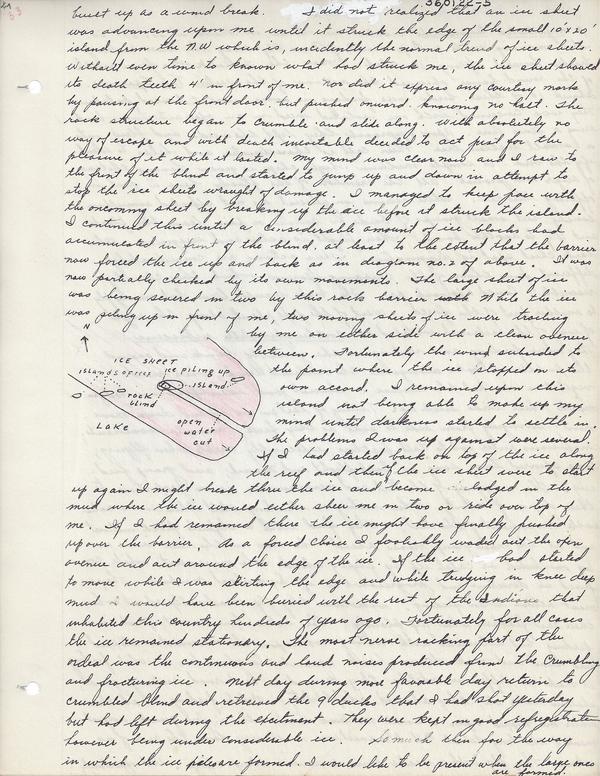 33
360122-5
built up as a wind break. I did not realized that an ice sheet
was advancing upon me until it struck the edge of the small 10'x20'
island from the N.W which is, incidently the normal trend of ice sheets.
Without even time to known what had struck me, the ice sheet showed
its death teeth 4' in front of me. nor did it express any courtesy marks
by pausing at the front door, but pushed onward knowing no halt. The
rock structure began to crumble and slide along. With absolutely no
way of escape and with death inevitable decided to act just for the
pleasure of it while it lasted. My mind was clear now and I ran to
the front of the blind and started to jump up and down in attempt to
stop the ice sheets wraught of damage. I managed to keep pace with
the oncoming sheet by breaking up the ice before it struck the island.
I continued this until a considerable amount of ice blocks had
accumulated in front of the blind, at least to the extent that the barrier
now forced the ice up and back as in diagram no. 2 of above. It was
now partially checked by its own movements. The large sheet of ice
was being severed in two by this rock barrier While the ice
was piling up in front of me, two moving sheets of ice were tracking
by me on either side with a clean avenue
between. Fortunately the wind subsided to
the point where the ice stopped on its
own accord. I remained upon this
island not being able to make up my
mind until darkness started to settle in.
The problems I was up against were several.
If I had started back on top of the ice along
the reef and then if the ice sheet were to start
N
ICE SHEET
ISLANDS OF REEF
ice piling up
ISLAND
rock
blind
open
water
cut
LAKE
up again I might break thru the ice and become lodged in the
mud where the ice would either sheer me in two or ride over top of
me. If I had remained there the ice might have finally pushed
up over the barrier. As a forced choice I foolishly waded out the open
avenue and out around the edge of the ice. If the ice had started
to move while I was skirting the edge and while trudging in knee deep
mud I would have been buried with the rest of the Indians that
inhabited this country hundreds of years ago. Fortunately for all cases
the ice remained stationary. The most nerve racking part of the
ordeal was the continuous and loud noises produced from the crumbling
and fracturing ice. Next day during more favorable day return to
crumbled blind and retrieved the 9 ducks that I had shot yesterday
but had left during the excitment. They were kept in good refregeration
however being under considerable ice. So much then for the way
in which the ice piles are formed. I would like to be present when the large ones
are formed.